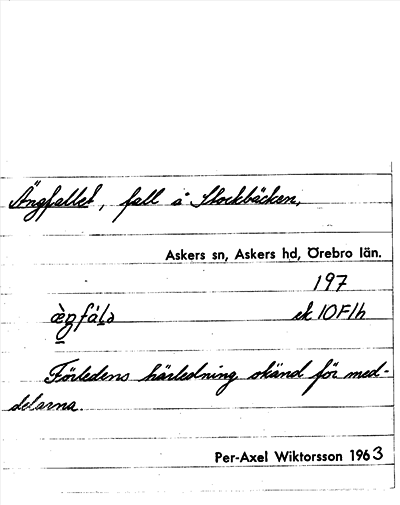 Ängfallet, fall å Stockbäcken.
Askers sn, Askers hd, Örebro län.
197
æ̀ŋfáḷə ek 10F1h
Förledens härledning okänd för med-
delarna.
Per-Axel Wiktorsson 1963